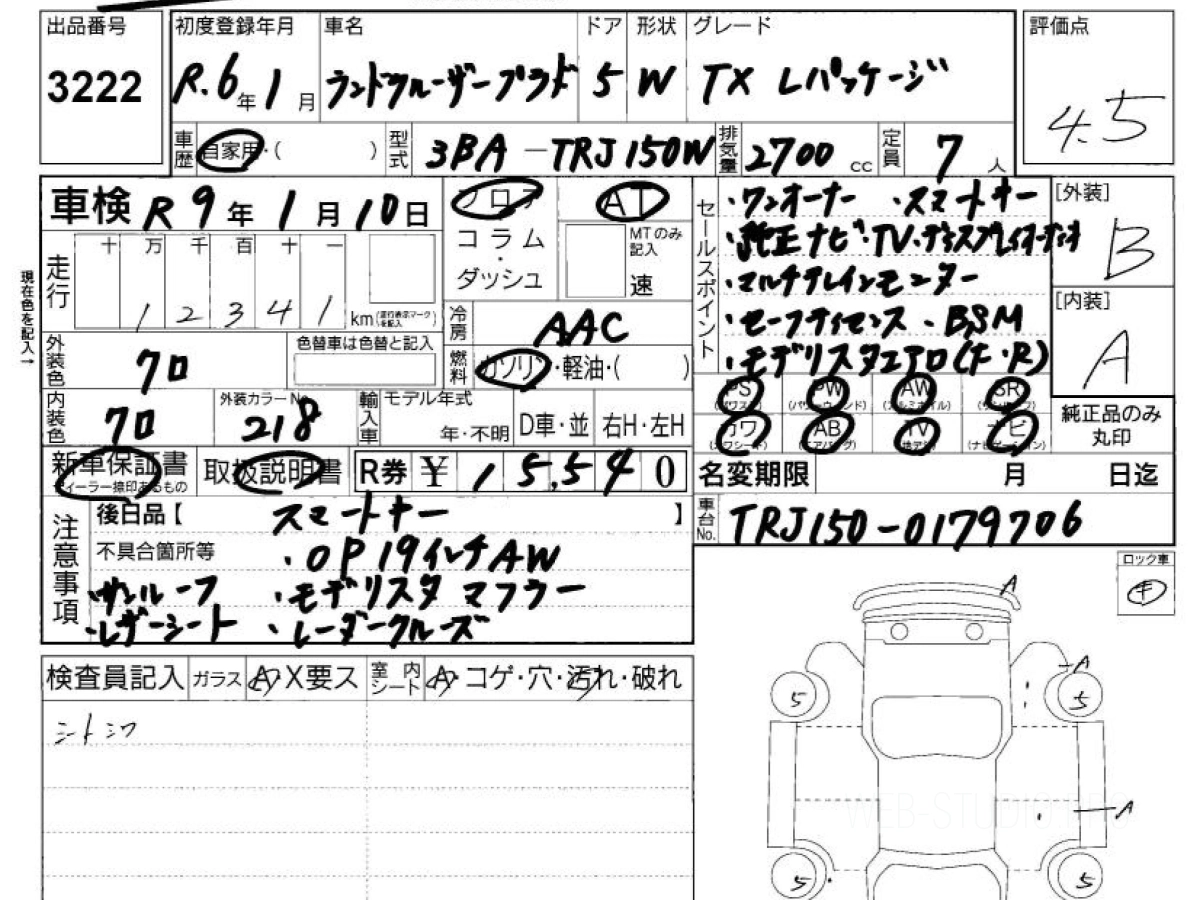 出品番号 初度登録年月 車名 ドア 形状 グレード 評価点
3222 R.6年1月 ランドクルーザープラド 5 W TX Lパッケージ 4.5
車歴 自家用・( ) 型式 3BA-TRJ150W 排気量 2700cc 定員 7人
車検 R9年1月10日 フロア AT セールスポイント ・ワンオーナー ・スマートキー [外装]
走行 十万千百十一 コラム・ダッシュ MTのみ記入 速 ・純正ナビ・TV・ディスプレイオーディオ B
12341km(走行表示マークを記入) ・マルチテレインモニター [内装]
現在色を記入→ 冷房 AAC ・セーフティセンス・BSM A
外装色 クロ 色替車は色替と記入 燃料 ガソリン・軽油・( ) ・モデリスタエアロ(F・R)
PS(パワステ) PW(パワーウィンド) AW(アルミホイル) SR(サンルーフ) 純正品のみ丸印
内装色 クロ 外装カラーNo. 218 輸入車 モデル年式 年・不明 D車・並 右H・左H
カワ(カワシート) AB(エアバッグ) TV(地デジ) ナビ(ナビゲーション)
新車保証書 ディーラー捺印あるもの 取扱説明書 R券 ¥15,540 名変期限 月 日迄
注意事項 後日品【 スマートキー 】 車台No. TRJ150-0179706
不具合箇所等 ・OP19インチAW ロック車
・サンルーフ ・モデリスタマフラー キ
・レザーシート ・レーダークルーズ
検査員記入 ガラス A・X要ス 室内シート A・コゲ・穴・汚れ・破れ
シートシワ
A
A
5 5
A
5 5
WEB-STUDIO.PRO